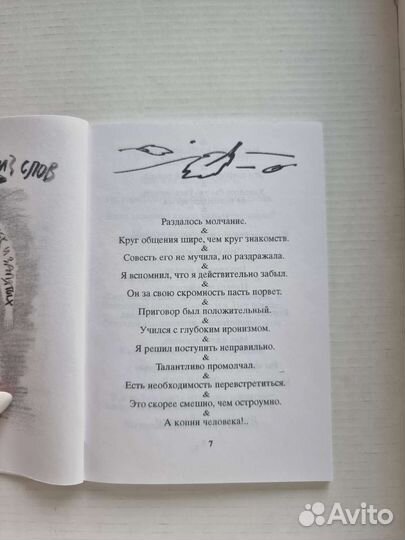 из слов
Раздалось молчание.
&
Круг общения шире, чем круг знакомств.
&
Совесть его не мучила, но раздражала.
&
Я вспомнил, что я действительно забыл.
&
Он за свою скромность пасть порвет.
&
Приговор был положительный.
&
Учился с глубоким иронизмом.
&
Я решил поступить неправильно.
&
Талантливо промолчал.
&
Есть необходимость перевстретиться.
&
Это скорее смешно, чем остроумно.
&
А копни человека!..
7
Avito